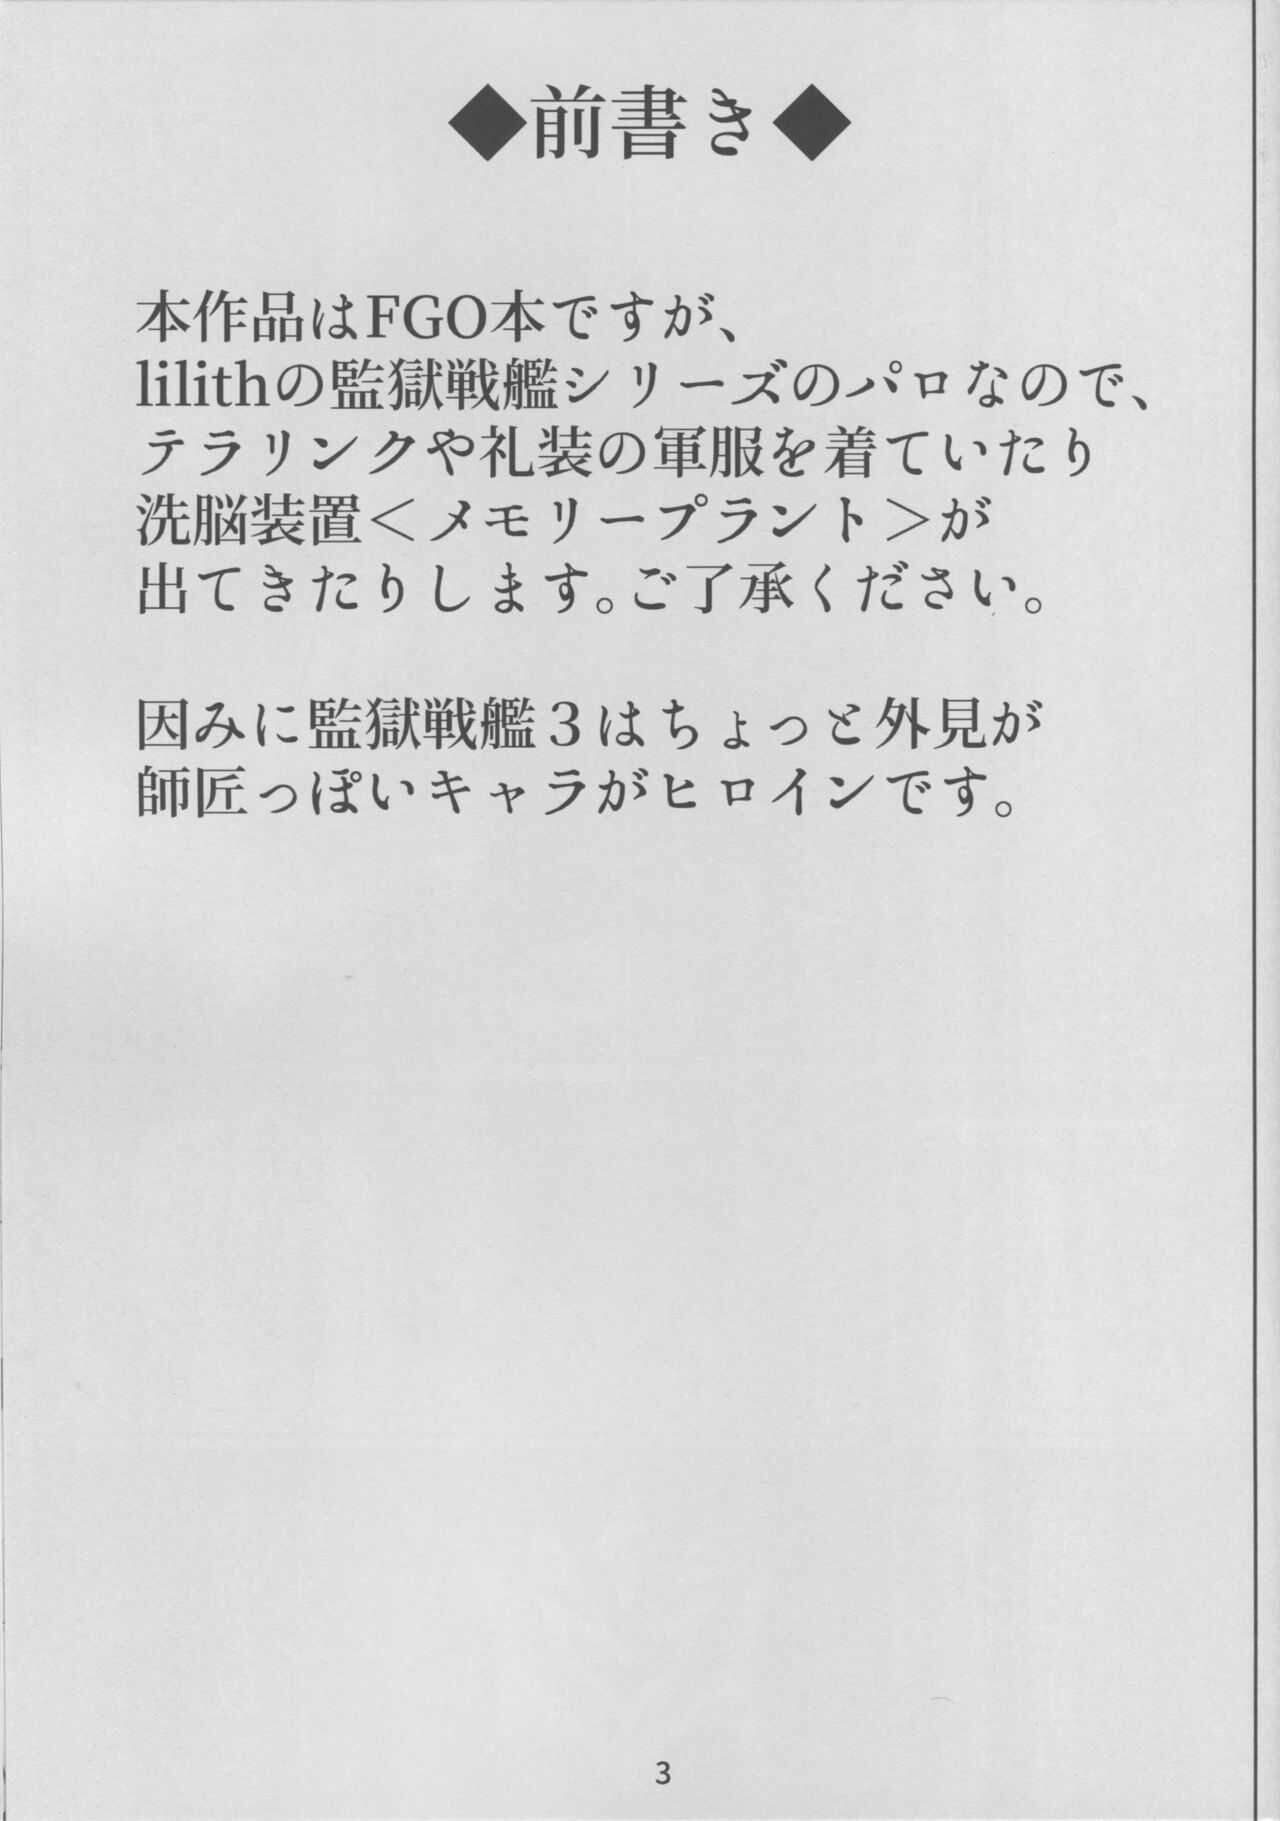 ◆前書き◆
本作品はFGO本ですが、
lilithの監獄戦艦シリーズのパロなので、
テラリンクや礼装の軍服を着ていたり
洗脳装置＜メモリープラント＞が
出てきたりします。ご了承ください。
因みに監獄戦艦３はちょっと外見が
師匠っぽいキャラがヒロインです。
3